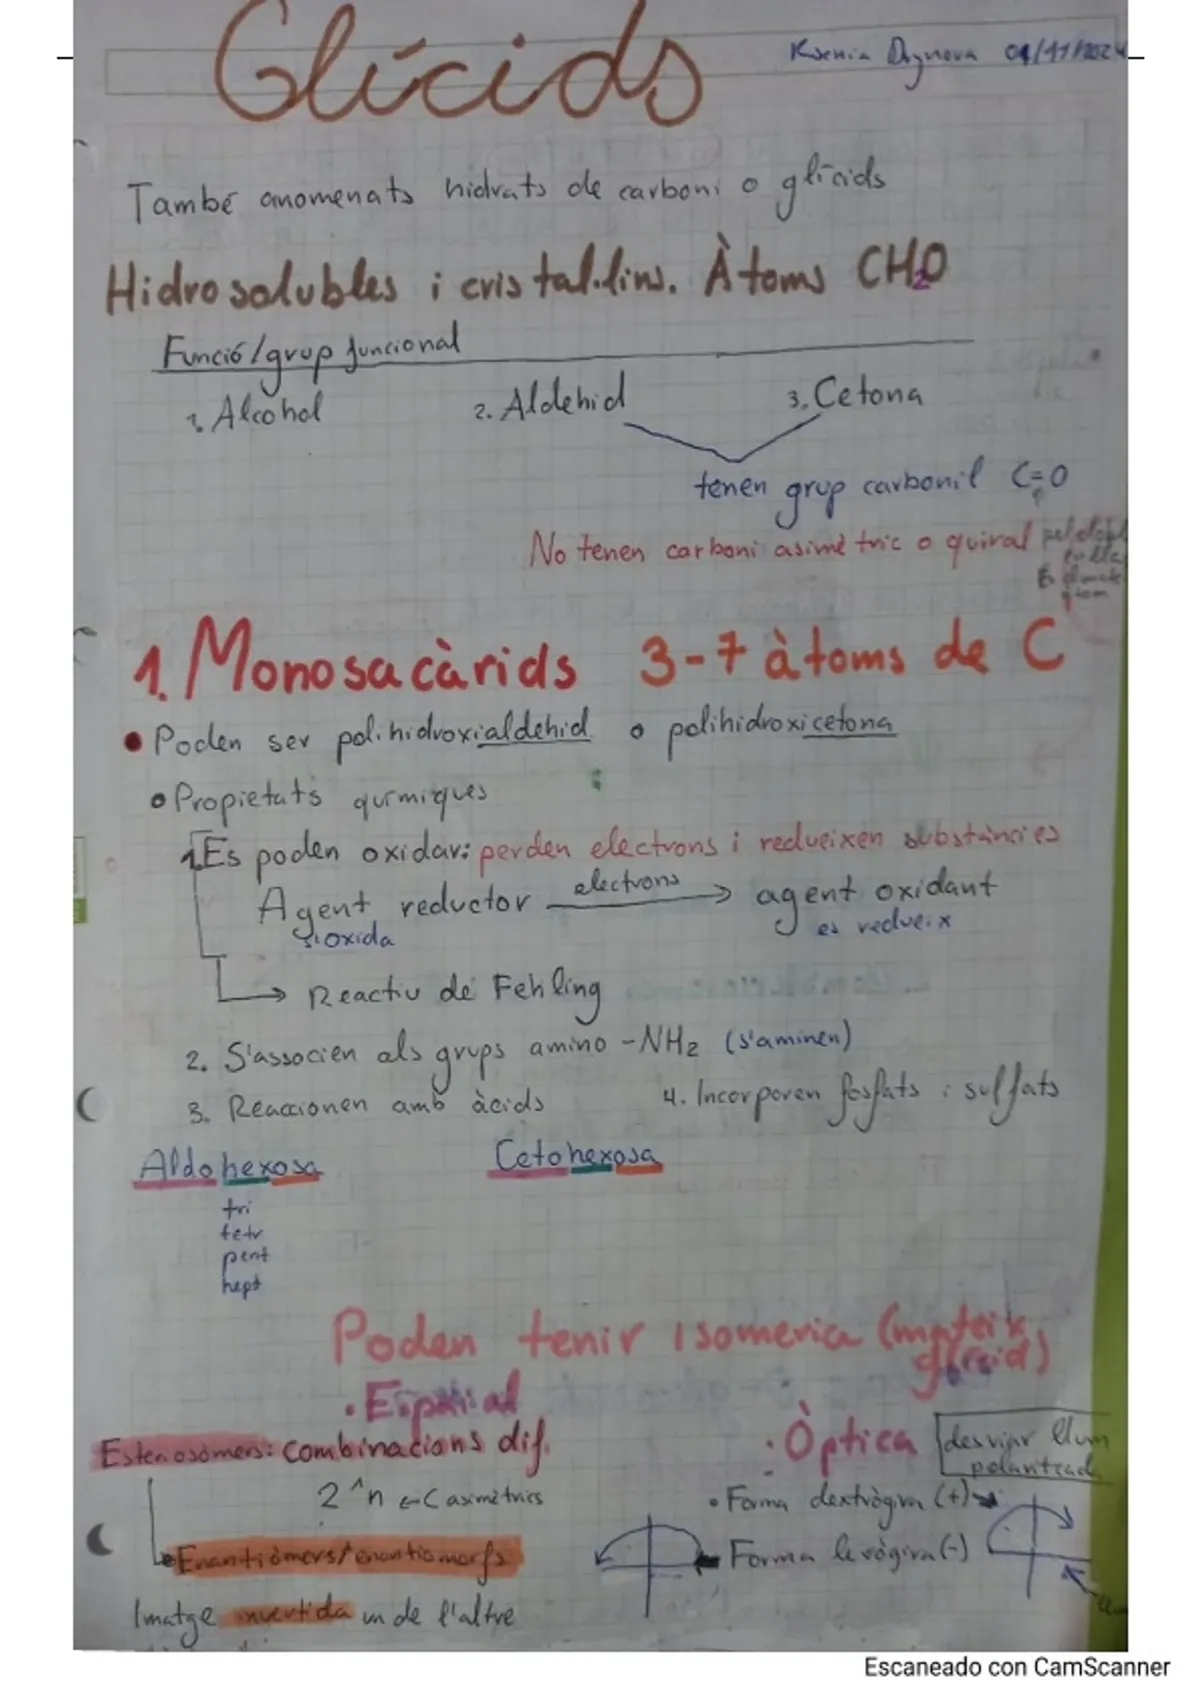 Glúcids
Ksenia 04/11/2024
També anomenats hidrats de carboni o glícids
Hidrosolubles i cristal.lins. Àtoms CH2O
Funció/grup funcional
1. Alcohol 2. Aldehid 3. Cetona
tenen grup carbonil C=O
No tenen carboni asimètric o quiral
1. Monosacàrids 3-7 àtoms de C
• Poden ser polihidroxialdehid o polihidroxicetona
• Propietats químiques
1. Es poden oxidar: perden electrons i redueixen substàncies
Agent reductor electrons → agent oxidant
s'oxida es redueix
→ Reactiu de Fehling
2. S'associen als grups amino -NH2 (s'aminen)
3. Reaccionen amb àcids 4. Incorporen fosfats i sulfats
Aldohexosa Cetohexosa
tri
tetr
pent
hept
Poden tenir isomeria (mateix
glúcid)
• Espaial
Esteriosòmers: combinacions dif.
• Òptica desviar llum
polaritzada
2^n ← C asimètrics
• Forma dextrògira (+)
• Enantiòmers/enantiomorfs
Forma levògira (-)
llum
Imatge invertida un de l'altre
Escaneado con CamScanner